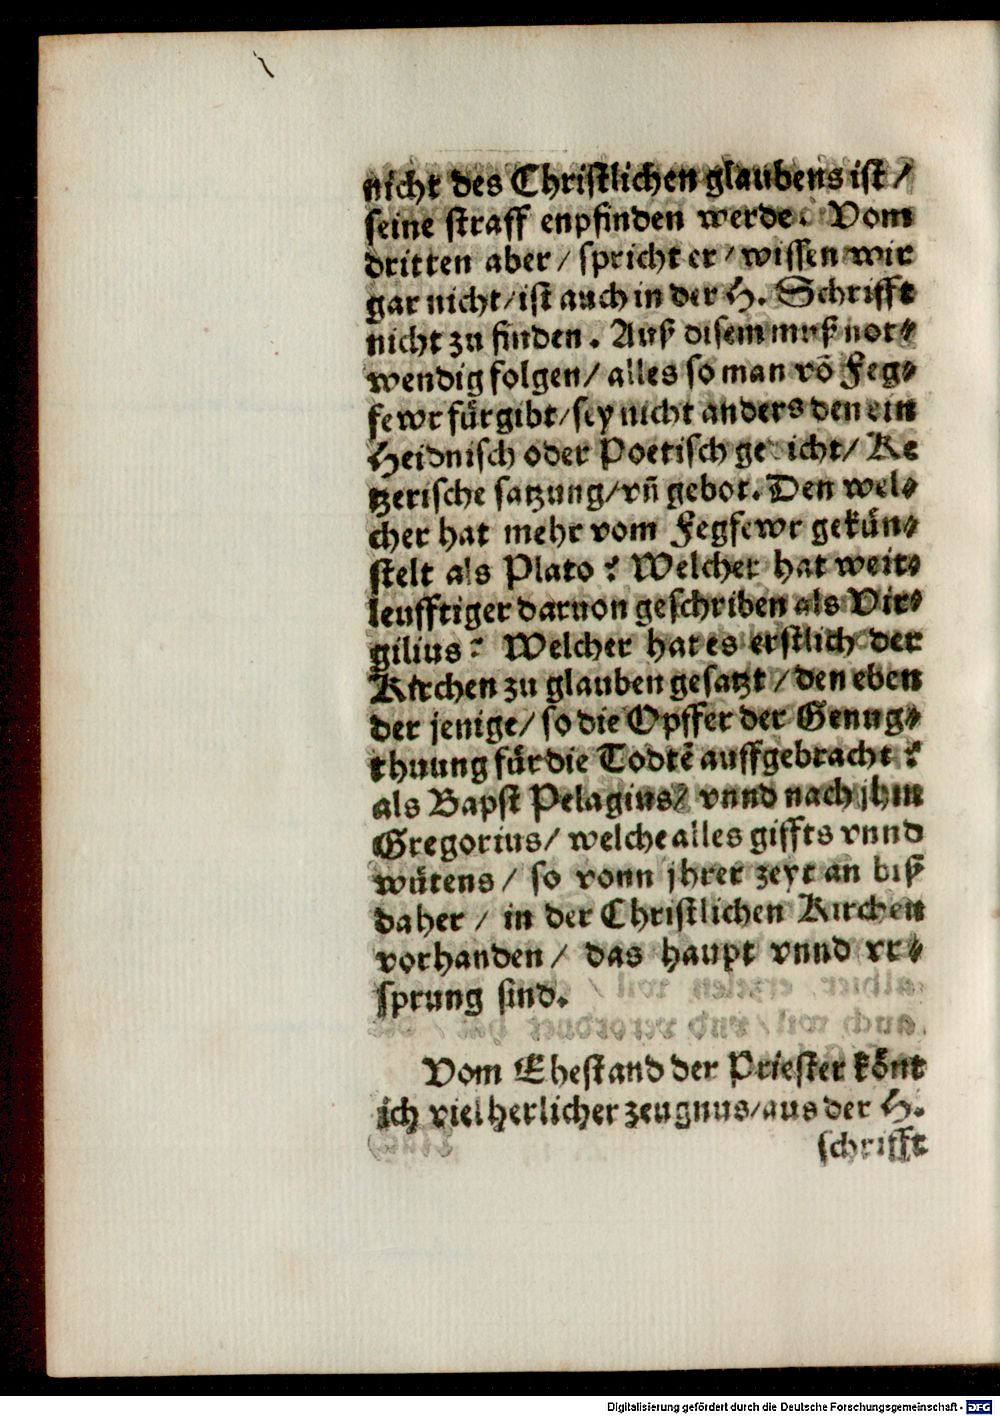 nicht des Christlichen glaubens ist /
seine straff enpfinden werde. Vom
dritten aber / spricht er / wissen wir
gar nicht / ist auch in der H. Schrifft
nicht zu finden. Auß disem muß not⸗
wendig folgen / alles so man võ Feg⸗
fewr fürgibt / sey nicht anders den ein
Heidnisch oder Poetisch gedicht / Ke
tzerische satzung / vñ gebot. Den wel⸗
cher hat mehr vom Fegfewr gekün⸗
stelt als Plato? Welcher hat weit⸗
leufftiger daruon geschriben als Vir⸗
gilius? Welcher hat es erstlich der
Kirchen zu glauben gesatzt / den eben
der jenige / so die Opffer der Genug⸗
thuung für die Todtẽ auffgebracht?
als Bapst Pelagius / vnnd nach jhm
Gregorius / welche alles giffts vnnd
wütens / so vonn jhrer zeyt an biß
daher / in der Christlichen Kirchen
vorhanden / das haupt vnnd vr⸗
sprung sind.
Vom Ehestand der Priester könt
ich viel herlicher zeugnus / aus der H.
schrifft
Digitalisierung gefördert durch die Deutsche Forschungsgemeinschaft - DFG